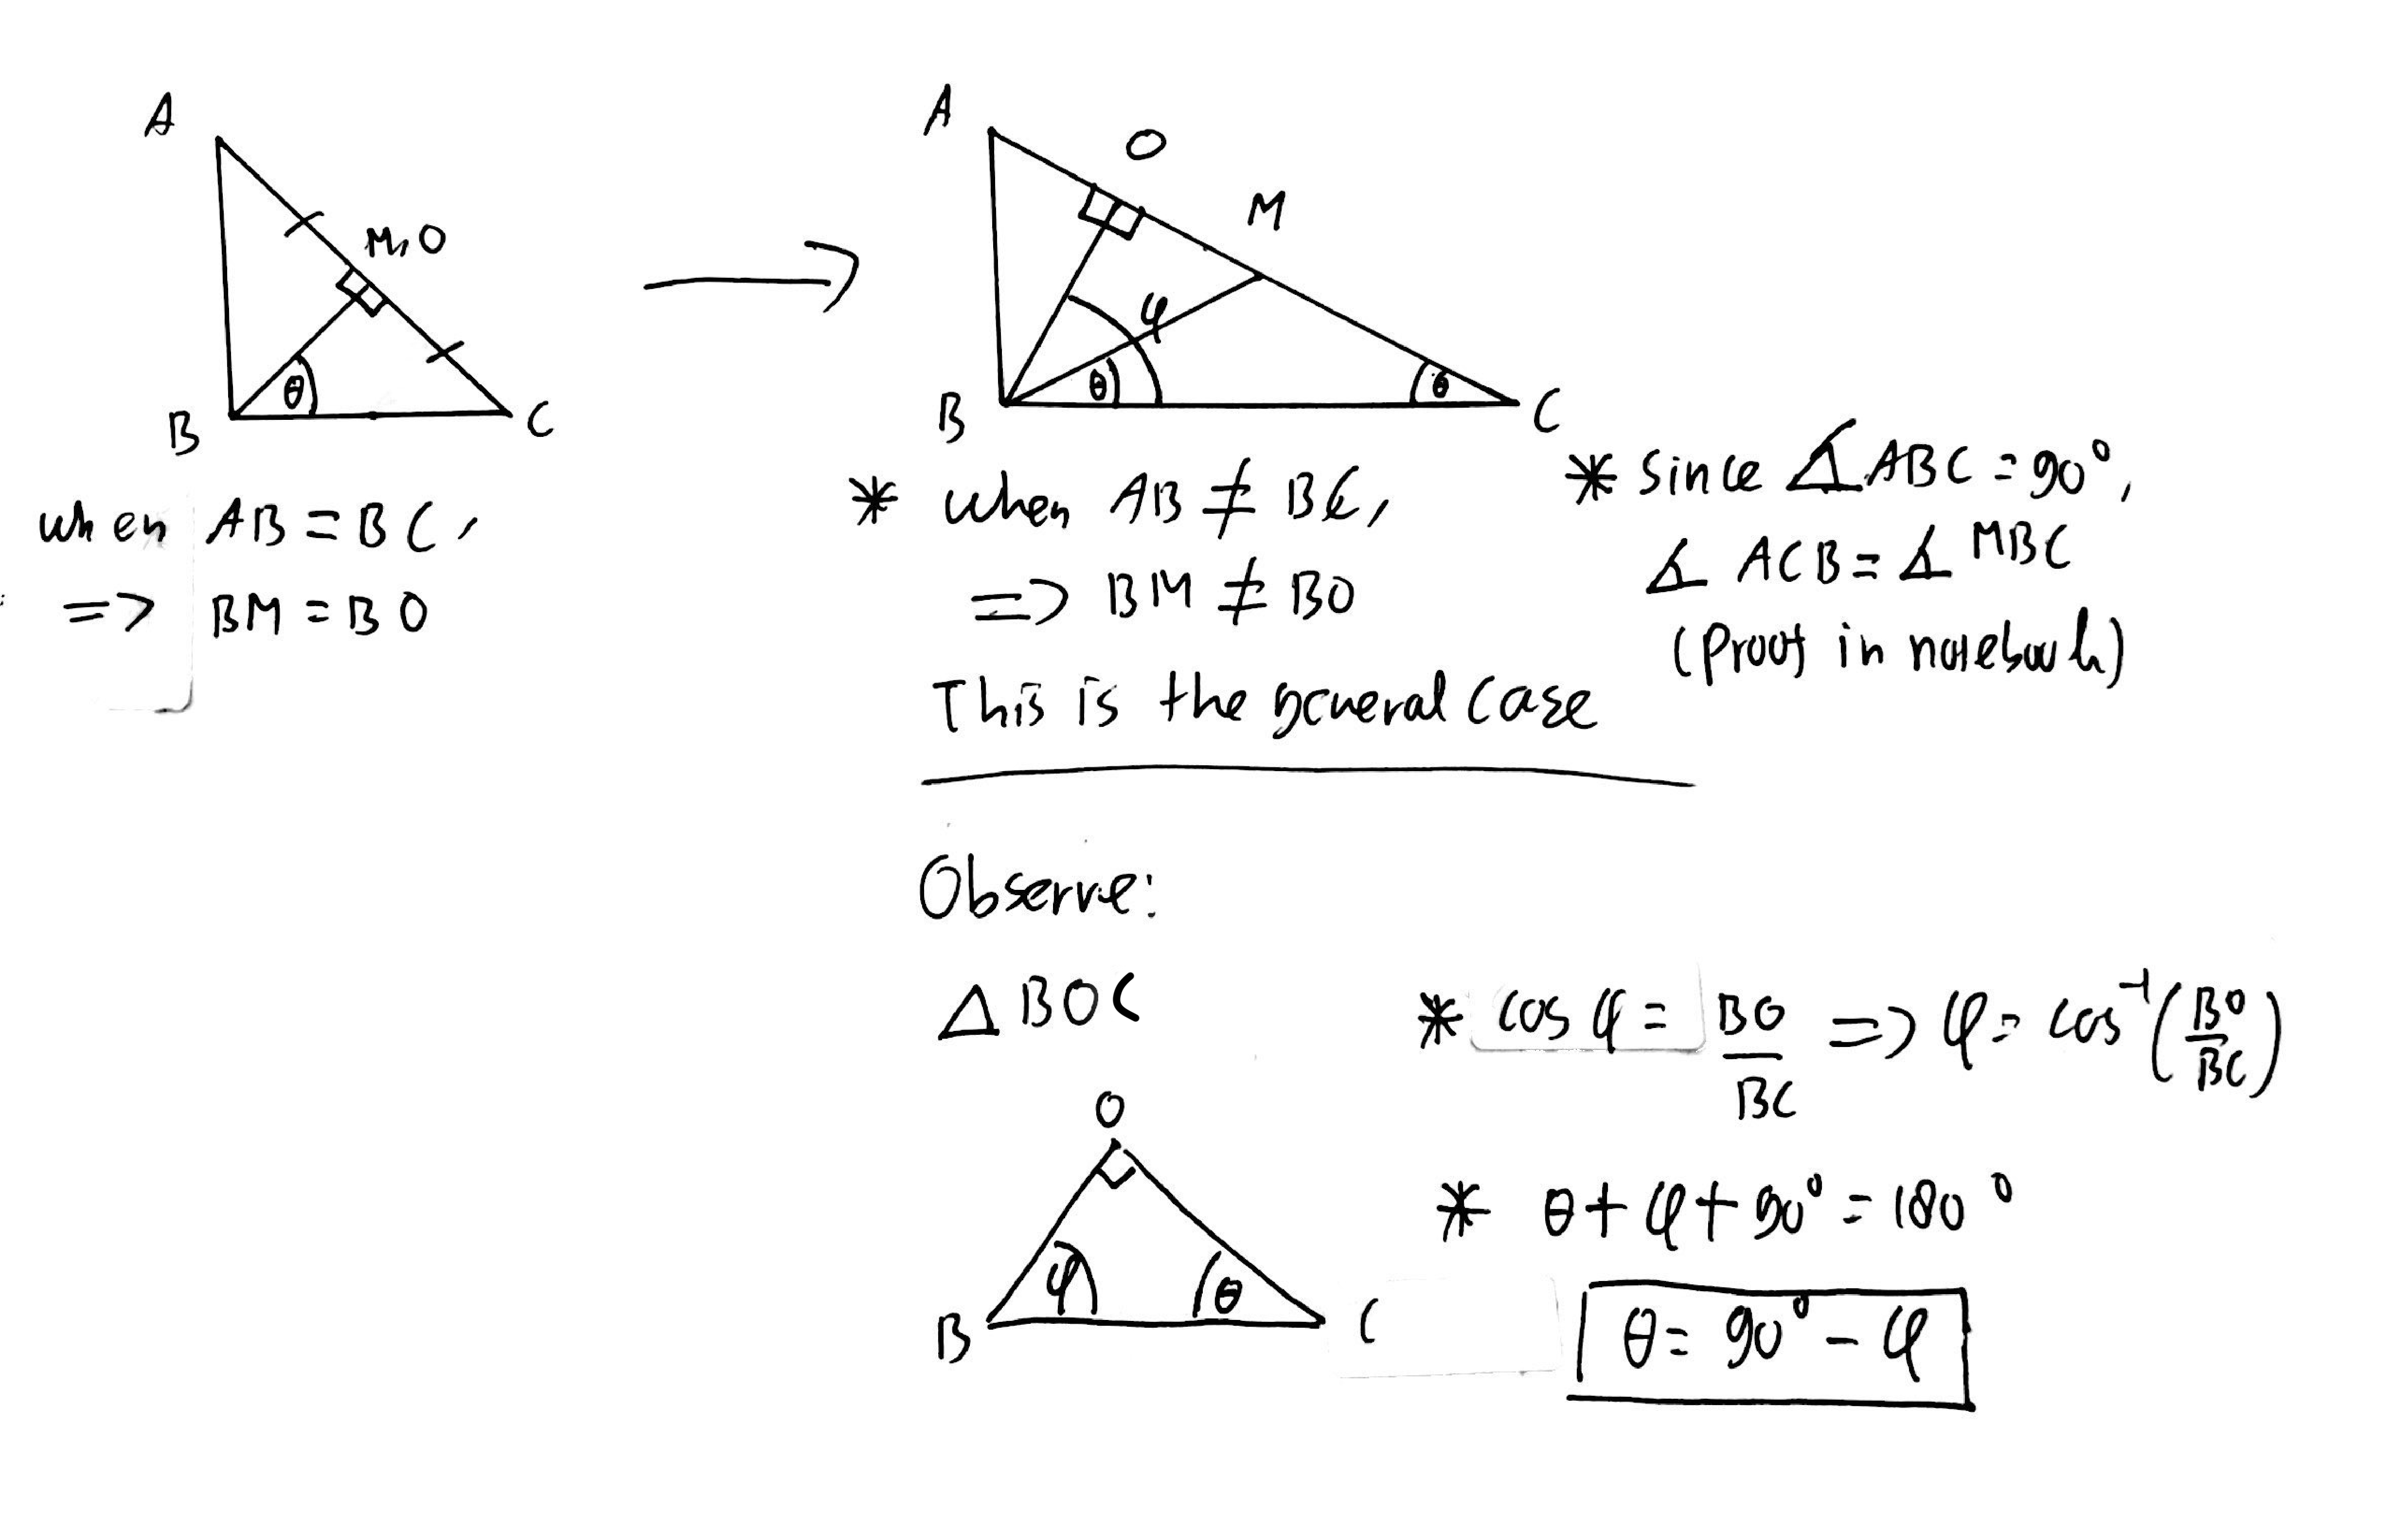 A
M,O
B
C
when AB = BC,
=> BM = BO
A
O
M
φ
θ
θ
B
C
* when AB ≠ BC,
=> BM ≠ BO
This is the general case
* since ∡ABC = 90°,
∡ ACB = ∡ MBC
(Proof in notebook)
Observe:
△ BOC
O
φ
θ
B
C
* cos φ = BO/BC => φ = cos⁻¹(BO/BC)
* θ + φ + 90° = 180°
θ = 90° - φ